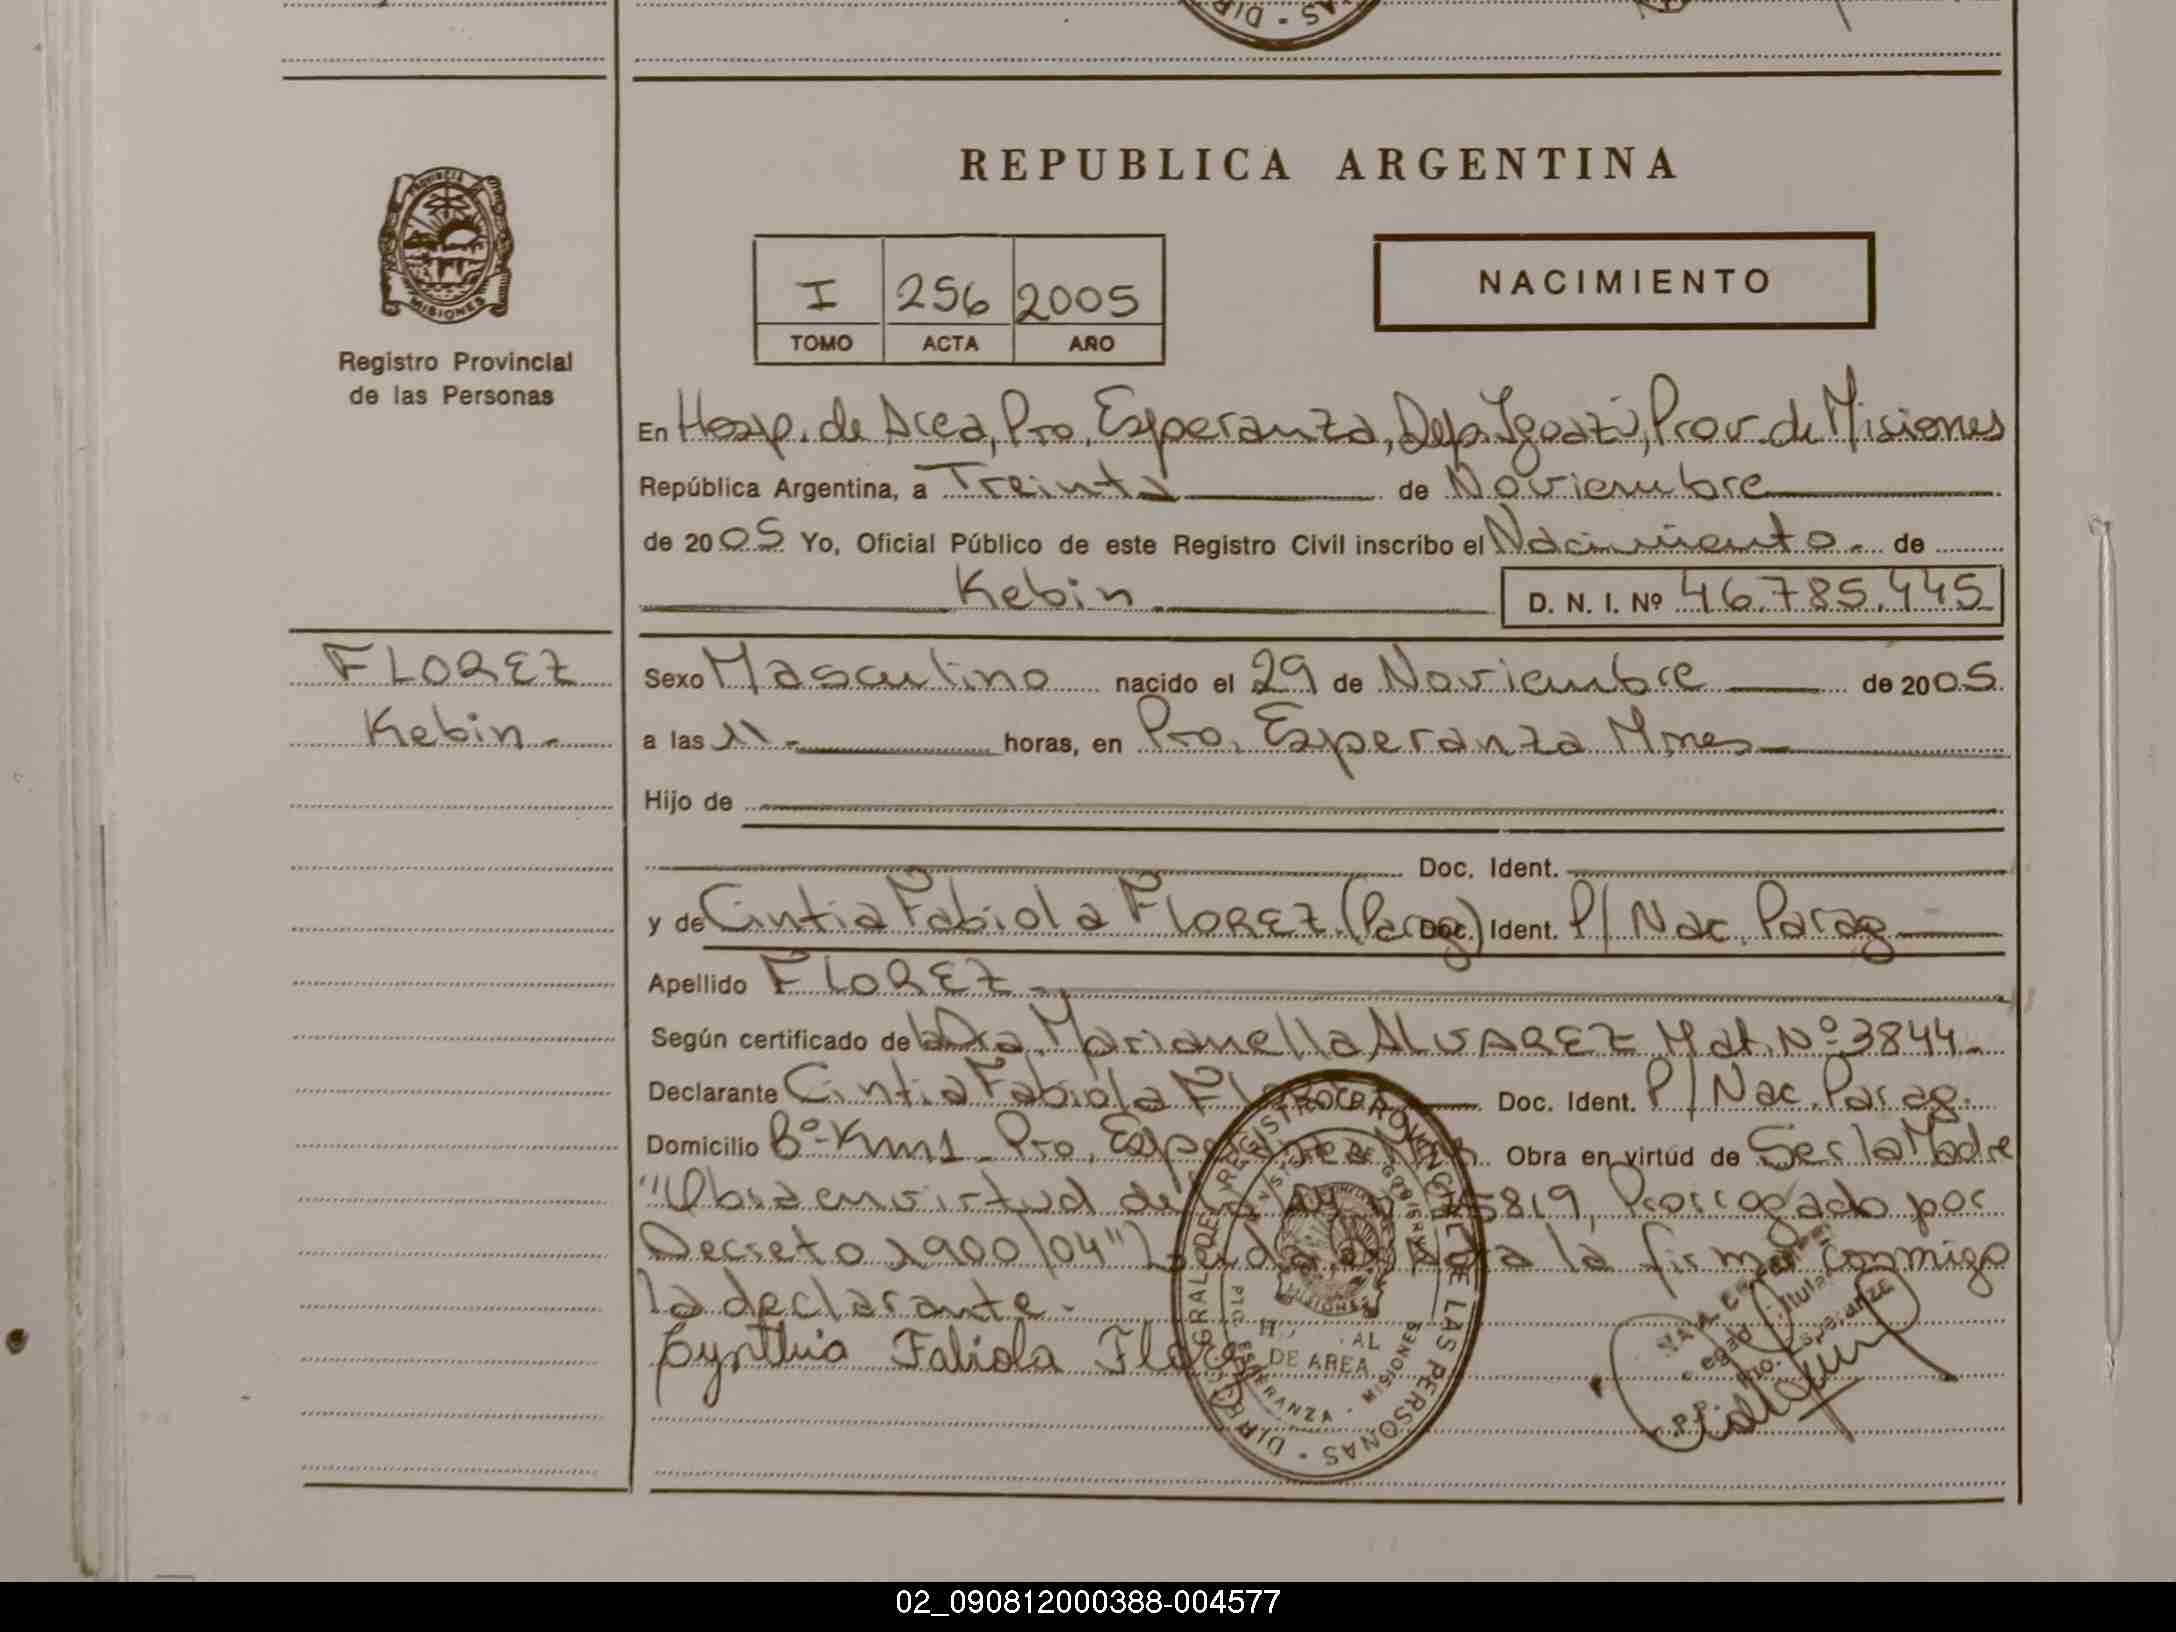 REPUBLICA ARGENTINA
PROVINCIA DE
MISIONES
Registro Provincial
de las Personas
I 256 2005
TOMO ACTA AÑO
NACIMIENTO
En Hosp. de Area, Pto. Esperanza, Dep. Iguazú, Prov. de Misiones
República Argentina, a Treinta de Noviembre
de 2005 Yo, Oficial Público de este Registro Civil inscribo el Nacimiento.- de
Kebin D. N. I. Nº 46.785.445
FLOREZ
Kebin.-
Sexo Masculino nacido el 29 de Noviembre de 2005
a las 11.- horas, en Pto. Esperanza Mnes
Hijo de
Doc. Ident.
y de Cintia Fabiola FLOREZ (Parag) Doc. Ident. P/ Nac. Parag
Apellido FLOREZ.-
Según certificado de la Dra. Marianella ALVAREZ Mat. Nº 3844.-
Declarante Cintia Fabiola Doc. Ident. P/ Nac. Parag.
Domicilio Bº-Km1- Pto. Obra en virtud de Ser la Madre
"Obra en virtud de 25819, Prorrogado por
Decreto 1900/04" la firma conmigo
la declarante.-
Cynthia Fabiola
DIR. GRAL. DEL REGISTRO PROVINCIAL DE LAS PERSONAS
MISIONES
DE AREA
ESPERANZA - MISIONES
02_090812000388-004577